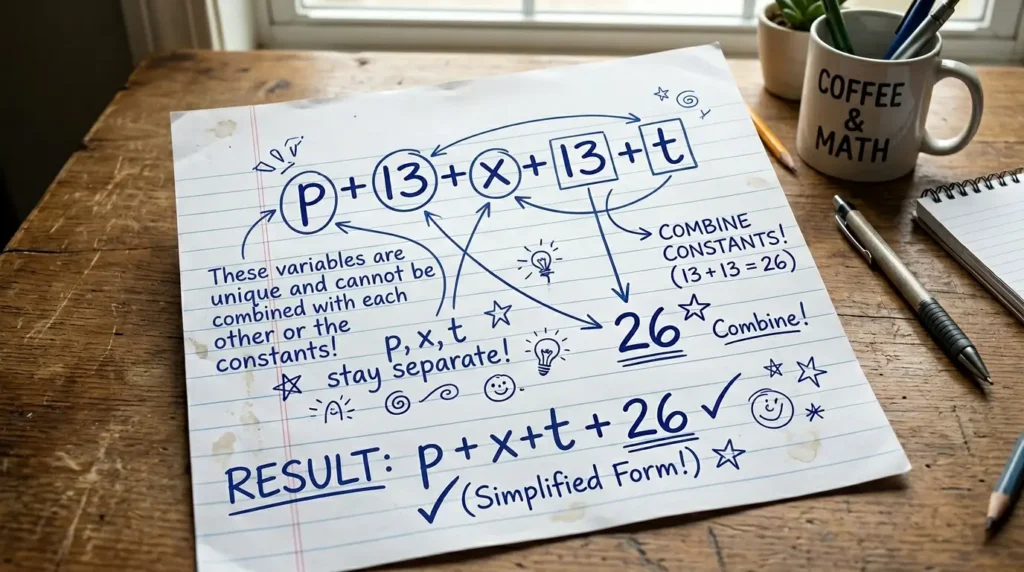 p + 13 + x + 13 + t
These variables are
unique and cannot be
combined with each
other or the
constants!
p, x, t
stay separate!
COMBINE
CONSTANTS!
(13 + 13 = 26)
26
Combine!
RESULT: p + x + t + 26
(Simplified Form!)
COFFEE
&
MATH